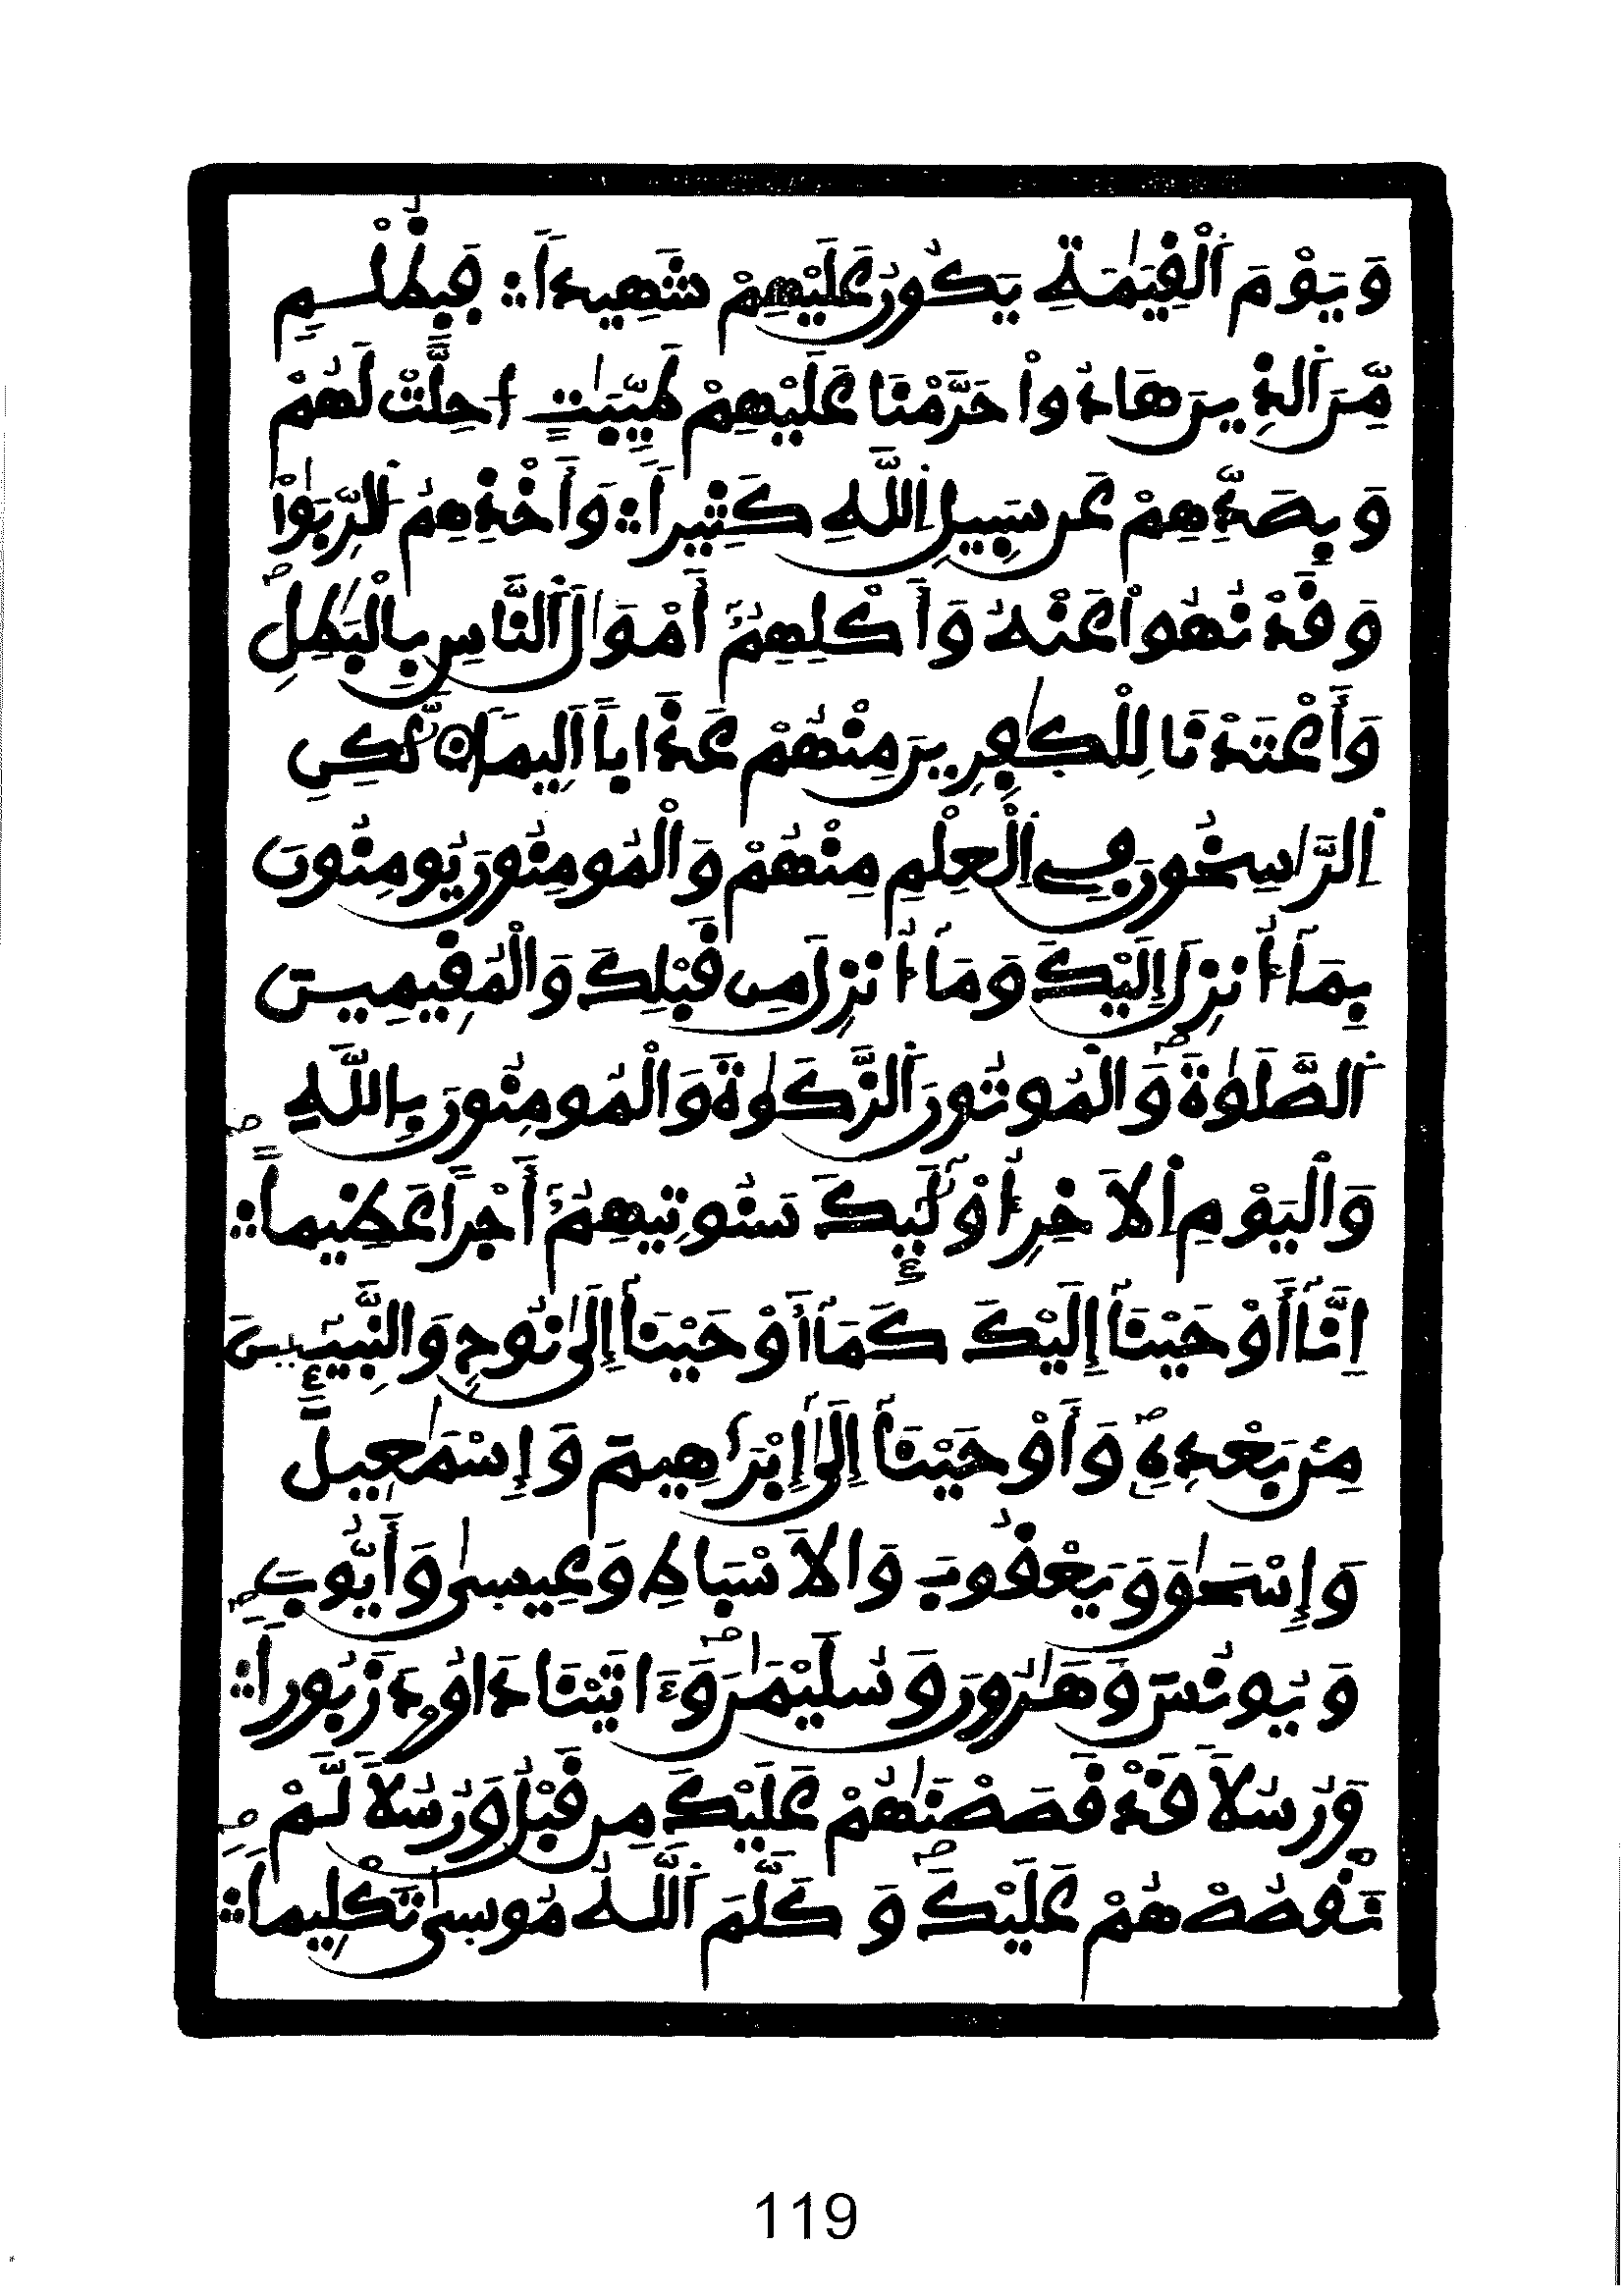 وَيَوْمَ اَ۬لْقِيَٰمَةِ يَكُونُ عَلَيْهِمْ شَهِيداٗۖ فَبِظُلْمٖ
مِّنَ اَ۬لذِينَ هَادُواْ حَرَّمْنَا عَلَيْهِمْ طَيِّبَٰتٍ ا۟حِلَّتْ لَهُمْ
وَبِصَدِّهِمْ عَن سَبِيلِ اِ۬للَّهِ كَثِيراٗۖ وَأَخْذِهِمُ اُ۬لرِّبَوٰاْ
وَقَدْ نُهُواْ عَنْهُ وَأَكْلِهِمُۥٓ أَمْوَٰلَ اَ۬لنَّاسِ بِالْبَٰطِلِۖ
وَأَعْتَدْنَا لِلْكٰ۪فِرِينَ مِنْهُمْ عَذَاباً اَلِيماٗ ۝ لَّٰكِنِ
اِ۬لرَّٰسِخُونَ فِے اِ۬لْعِلْمِ مِنْهُمْ وَالْمُومِنُونَ يُومِنُونَ
بِمَآ أُنزِلَ إِلَيْكَ وَمَآ أُنزِلَ مِن قَبْلِكَ وَالْمُقِيمِينَ
اَ۬لصَّلَوٰةَۖ وَالْمُوتُونَ اَ۬لزَّكَوٰةَ وَالْمُومِنُونَ بِاللَّهِ
وَالْيَوْمِ اِ۬لَاخِرِ أُوْلَٰٓئِكَ سَنُوتِيهِمُۥٓ أَجْراً عَظِيماًۖ
اِنَّآ أَوْحَيْنَآ إِلَيْكَ كَمَآ أَوْحَيْنَآ إِلَىٰ نُوحٖ وَالنَّبِيٓـِٕينَ
مِنۢ بَعْدِهِۦۖ وَأَوْحَيْنَآ إِلَىٰٓ إِبْرَٰهِيمَ وَإِسْمَٰعِيلَ
وَإِسْحَٰقَ وَيَعْقُوبَ وَالَاسْبَاطِ وَعِيسىٰ وَأَيُّوبَۖ
وَيُونُسَ وَهَٰرُونَ وَسُلَيْمَٰنَۖ وَءَاتَيْنَا دَاوُۥدَ زَبُوراٗۖ
وَرُسُلاٗ قَدْ قَصَصْنَٰهُمْ عَلَيْكَ مِن قَبْلُ وَرُسُلاٗ لَّمْ
نَقْصُصْهُمْ عَلَيْكَۖ وَكَلَّمَ اَ۬للَّهُ مُوسىٰ تَكْلِيماٗۖ
119